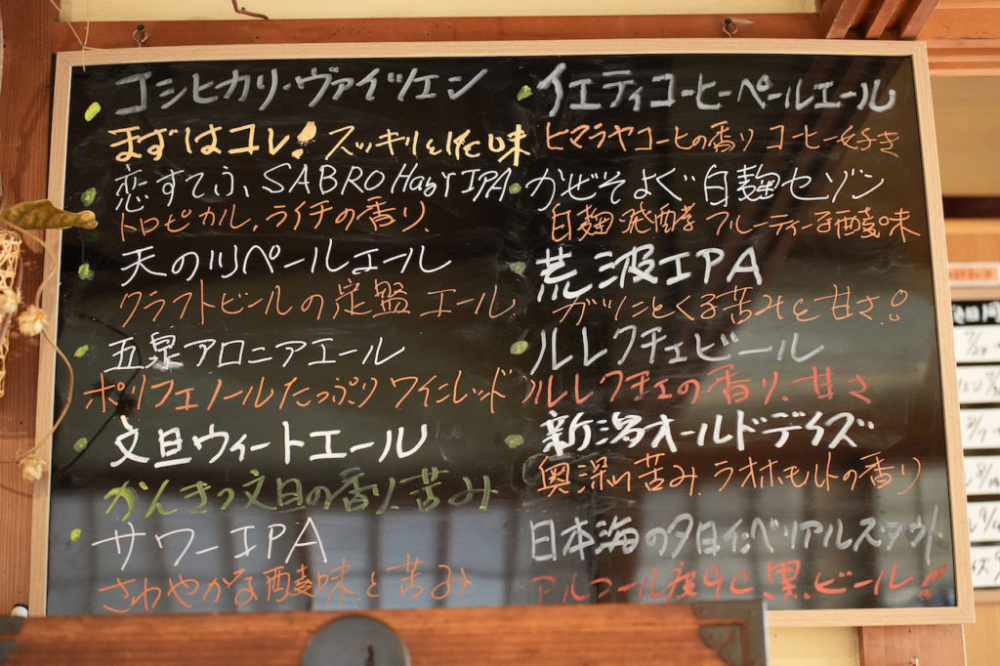 コシヒカリ・ヴァイツェン
まずはコレ! スッキリと化味
恋すてふ、SABRO HazY IPA
トロピカル,ライチの香り、
天の川ペールエール
クラフトビールの定盤 エール
五泉アロニアエール
ポリフェノールたっぷり ワインレッド
文旦ウィートエール
かんきつ文旦の香り、苦み
サワーIPA
さわやかな酸味と苦み
イエティコーヒーペールエール
ヒマラヤコーヒの香り コーヒー好き
かぜそよぐ 白麹セゾン
白麹発酵 フルーティーな酸味
荒波IPA
ガツンとくる苦みと甘さ。
ルレクチェビール
ルレクチェの香り、甘さ
新潟オールドデイズ
奥深い苦み、ラオホモルトの香り
日本海の夕日インペリアルスタウト
アルコール度9%、黒、ビール!